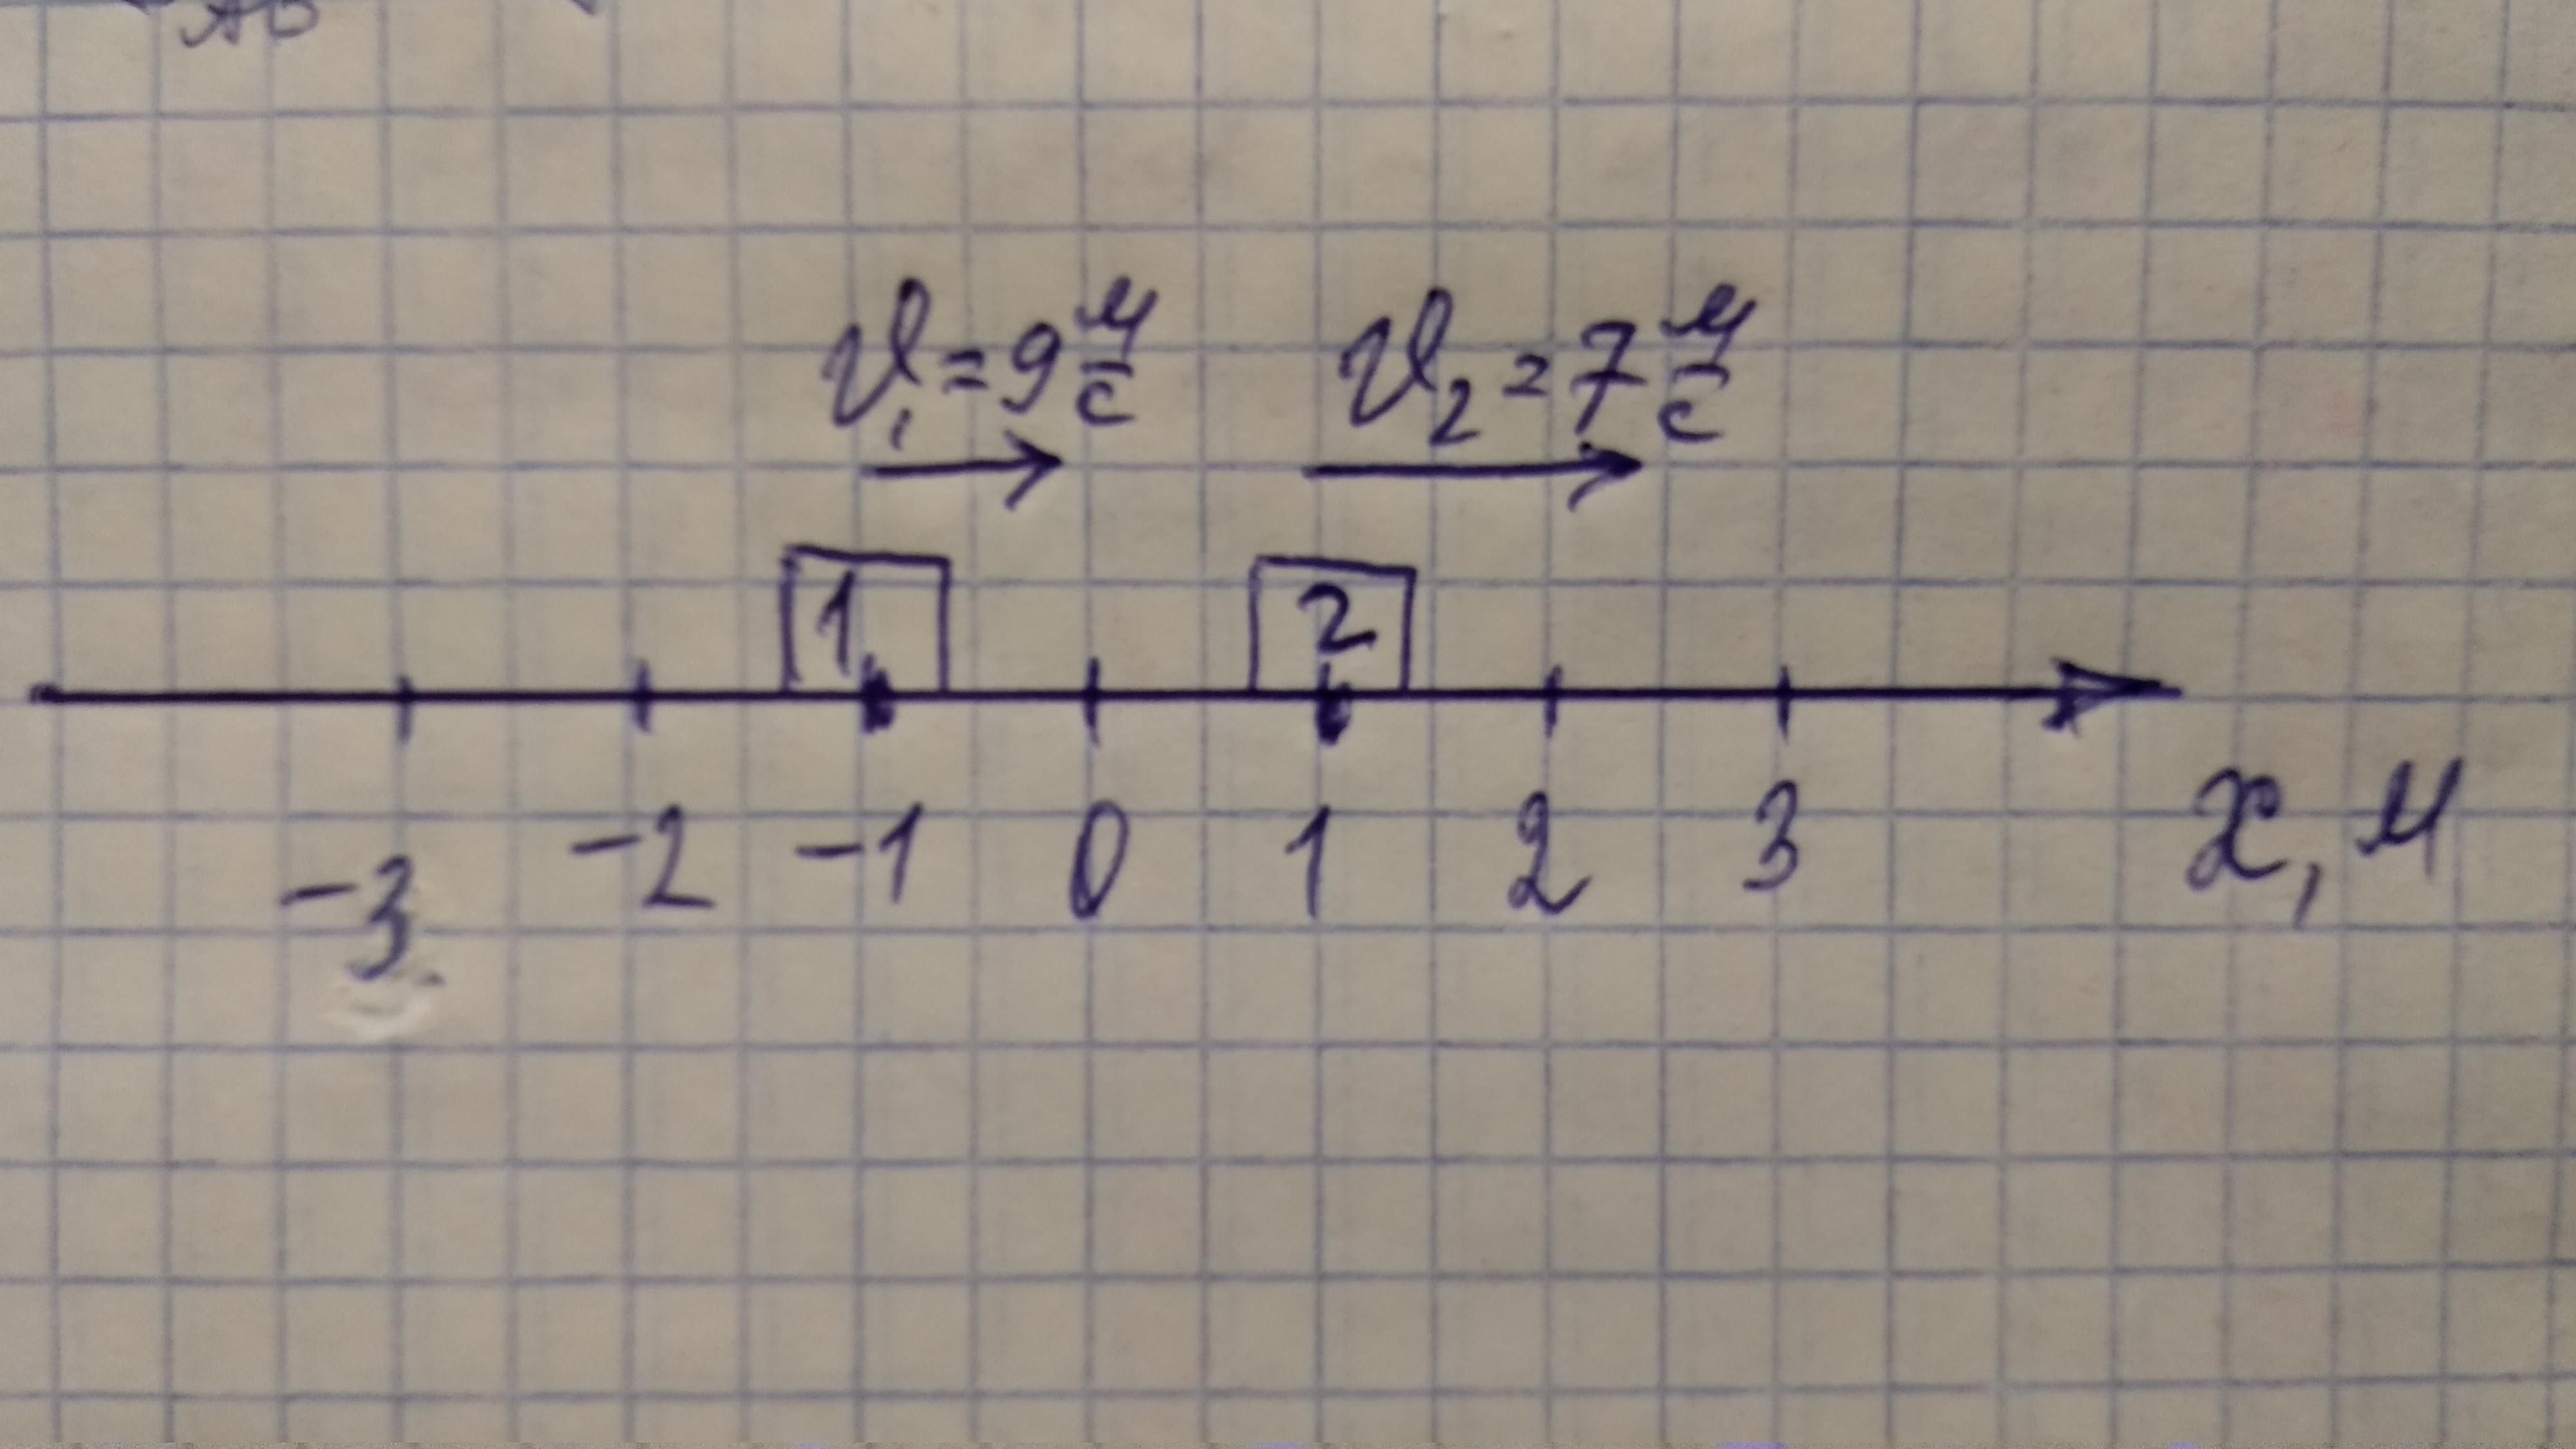 AB
υ₁ = 9 м/с υ₂ = 7 м/с
1 2
-3 -2 -1 0 1 2 3 x, м